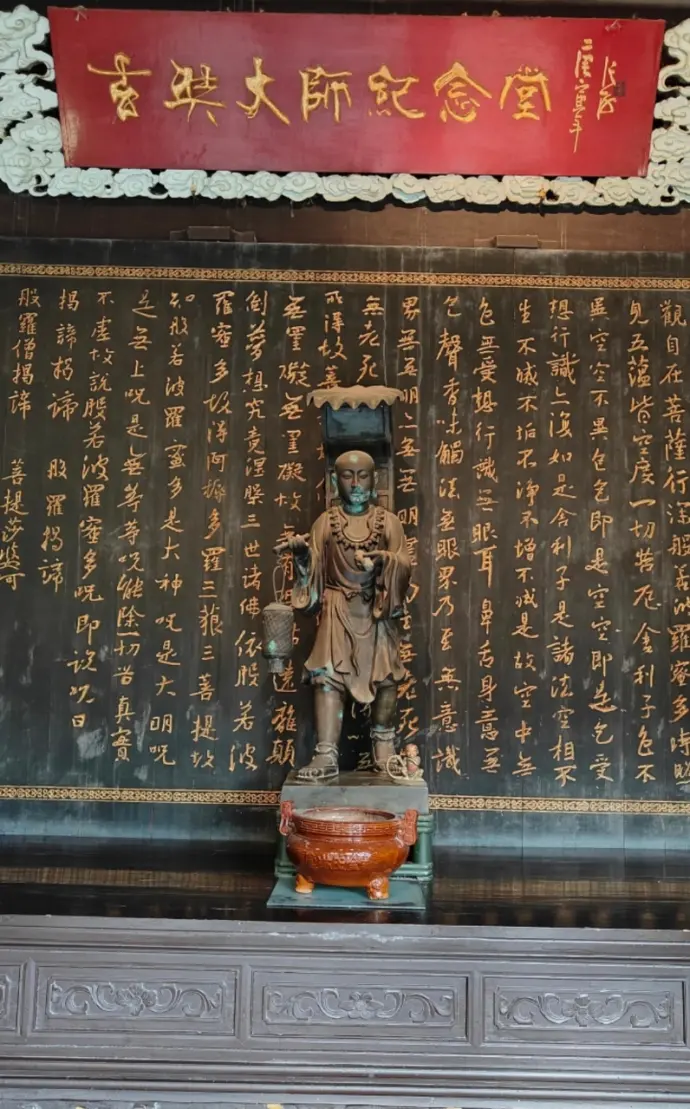 玄奘大师纪念堂
觀自在菩薩行深般若波羅蜜多時照
見五蘊皆空度一切苦厄舍利子色不
異空空不異色色即是空空即是色受
想行識亦復如是舍利子是諸法空相不
生不滅不垢不淨不增不減是故空中無
色無受想行識無眼耳鼻舌身意無
色聲香味觸法無眼界乃至無意識
界無無明亦無無明盡乃至無老死
無老死
所得故菩
無罣礙無罣礙故無有恐怖遠離顛
倒夢想究竟涅槃三世諸佛依般若波
羅蜜多故得阿耨多羅三藐三菩提故
知般若波羅蜜多是大神咒是大明咒
是無上咒是無等等咒能除一切苦真實
不虛故說般若波羅蜜多咒即說咒曰
揭諦揭諦 般羅揭諦
般羅僧揭諦 菩提莎婆訶